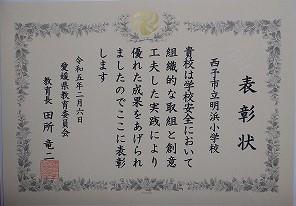 表彰状
西予市立明浜小学校
貴校は学校安全において
組織的な取組と創意
工夫した実践により
優れた成果をあげられ
ましたのでここに表彰
します
令和五年二月六日
愛媛県教育委員会
教育長 田所竜二